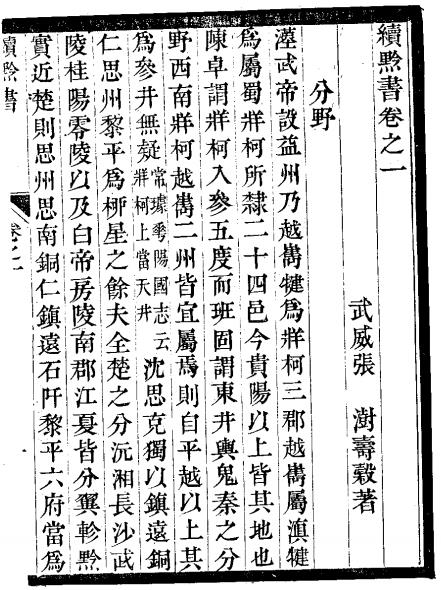 續黔書卷之一
武威張　澍壽穀著
分野
漢武帝設益州乃越嶲犍為牂柯三郡越嶲屬滇犍
為屬蜀牂柯所隸二十四邑今貴陽以上皆其地也
陳卓謂牂柯入參五度而班固謂東井輿鬼秦之分
野西南牂柯越嶲二州皆宜屬焉則自平越以上其
為參井無疑常璩華陽國志云牂柯上當天井沈思克獨以鎮遠銅
仁思州黎平為柳星之餘夫全楚之分沅湘長沙武
陵桂陽零陵以及白帝房陵南郡江夏皆分翼軫黔
實近楚則思州思南銅仁鎮遠石阡黎平六府當為
續黔書
卷之一
一